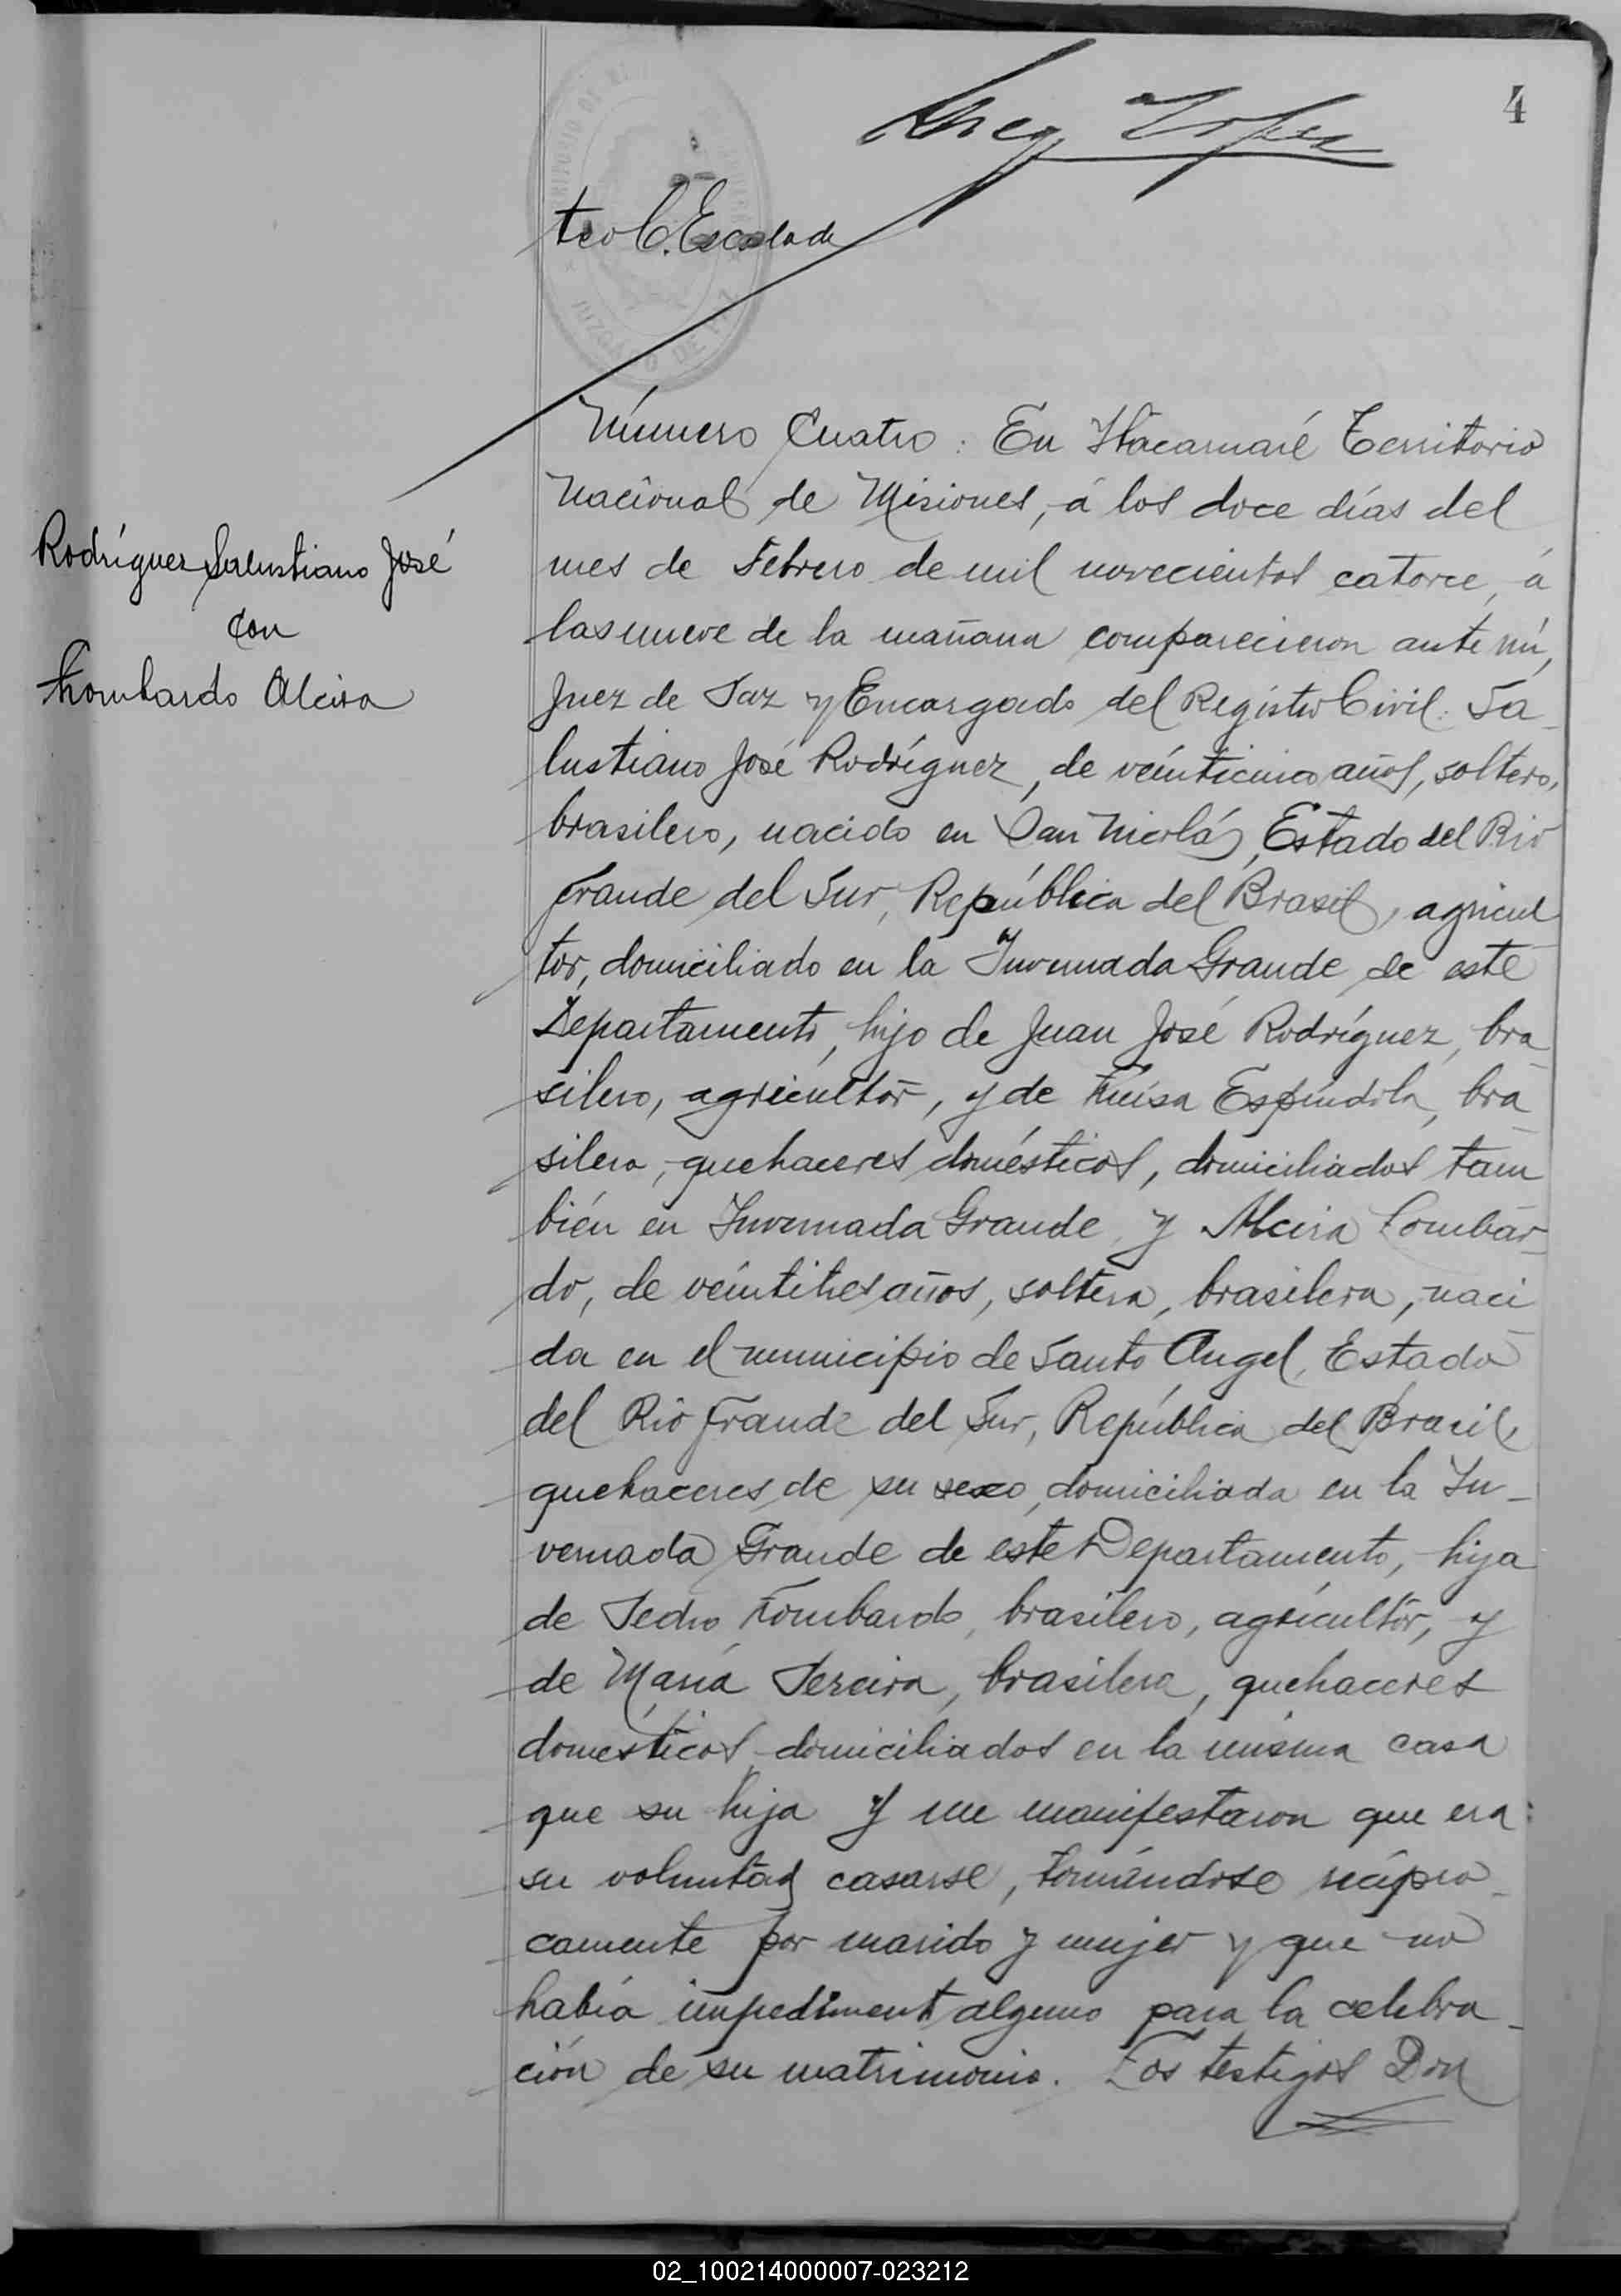 4
teo C. Escalada
Número Cuatro: En Itacaruaré Territorio
Nacional de Misiones, á los doce días del
mes de Febrero de mil novecientos catorce, á
las nueve de la mañana comparecieron ante mí,
Juez de Paz y Encargado del Registro Civil: Sa_
lustiano José Rodríguez, de veinticinco años, soltero,
brasilero, nacido en San Nicolás, Estado del Rio
Grande del Sur, República del Brasil, agricul
tor, domiciliado en la Invernada Grande de este
Departamento, hijo de Juan José Rodríguez, bra_
silero, agricultor, y de Luisa Espíndola, bra_
silera, quehaceres domésticos, domiciliados tam
bién en Invernada Grande, y Alcira Lombar_
do, de veintitres años, soltera, brasilera, naci
da en el municipio de Santo Angel, Estado
del Rio Grande del Sur, República del Brasil,
quehaceres de su sexo, domiciliada en la In_
vernada Grande de este Departamento, hija
de Pedro Lombardo, brasilero, agricultor, y
de María Pereira, brasilera, quehaceres
domésticos, domiciliados en la misma casa
que su hija y me manifestaron que era
su voluntad casarse, tomándose recípro_
camente por marido y mujer y que no
había impediment alguno para la celebra_
ción de su matrimonio. Los testigos Don
Rodríguez Salustiano José
con
Lombardo Alcira
02_100214000007-023212